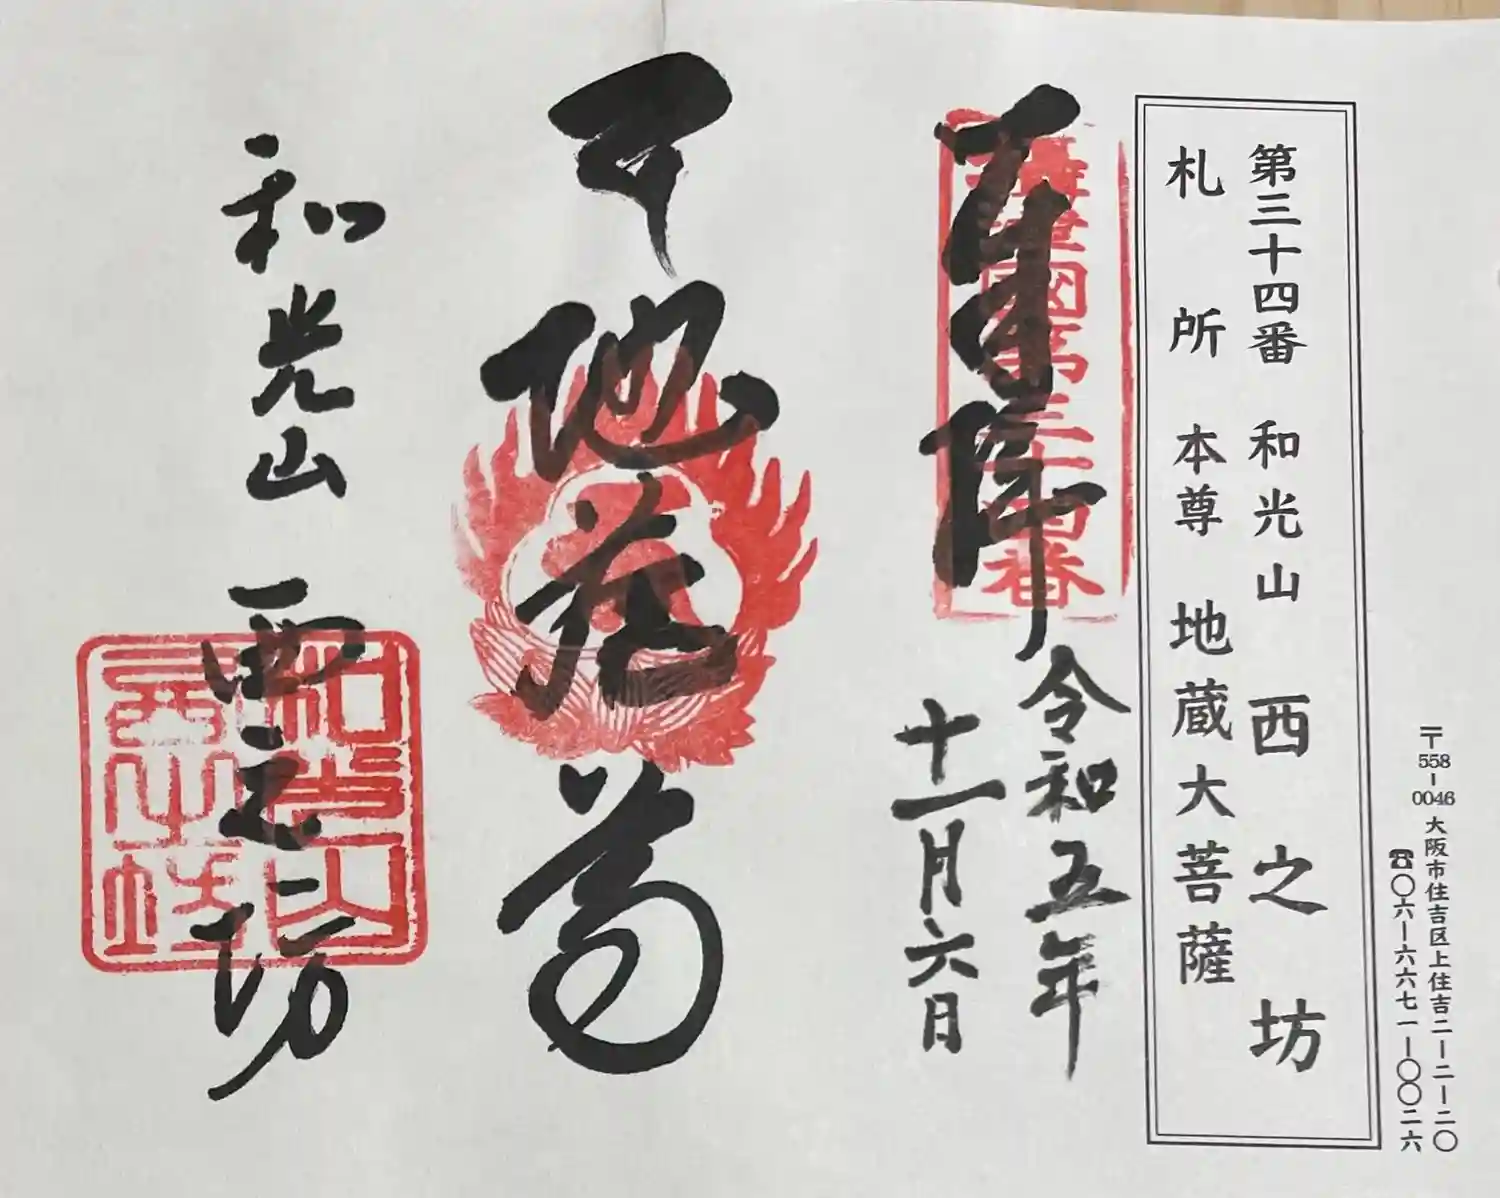 〒558-0046 大阪市住吉区上住吉二ー二ー二〇
☎〇六ー六六七一ー〇〇二六
第三十四番 和光山 西之坊
札所 本尊 地蔵大菩薩
國第三十四番
令和五年
十一月六日
地蔵尊
和光山 西之坊
和光山
西之坊